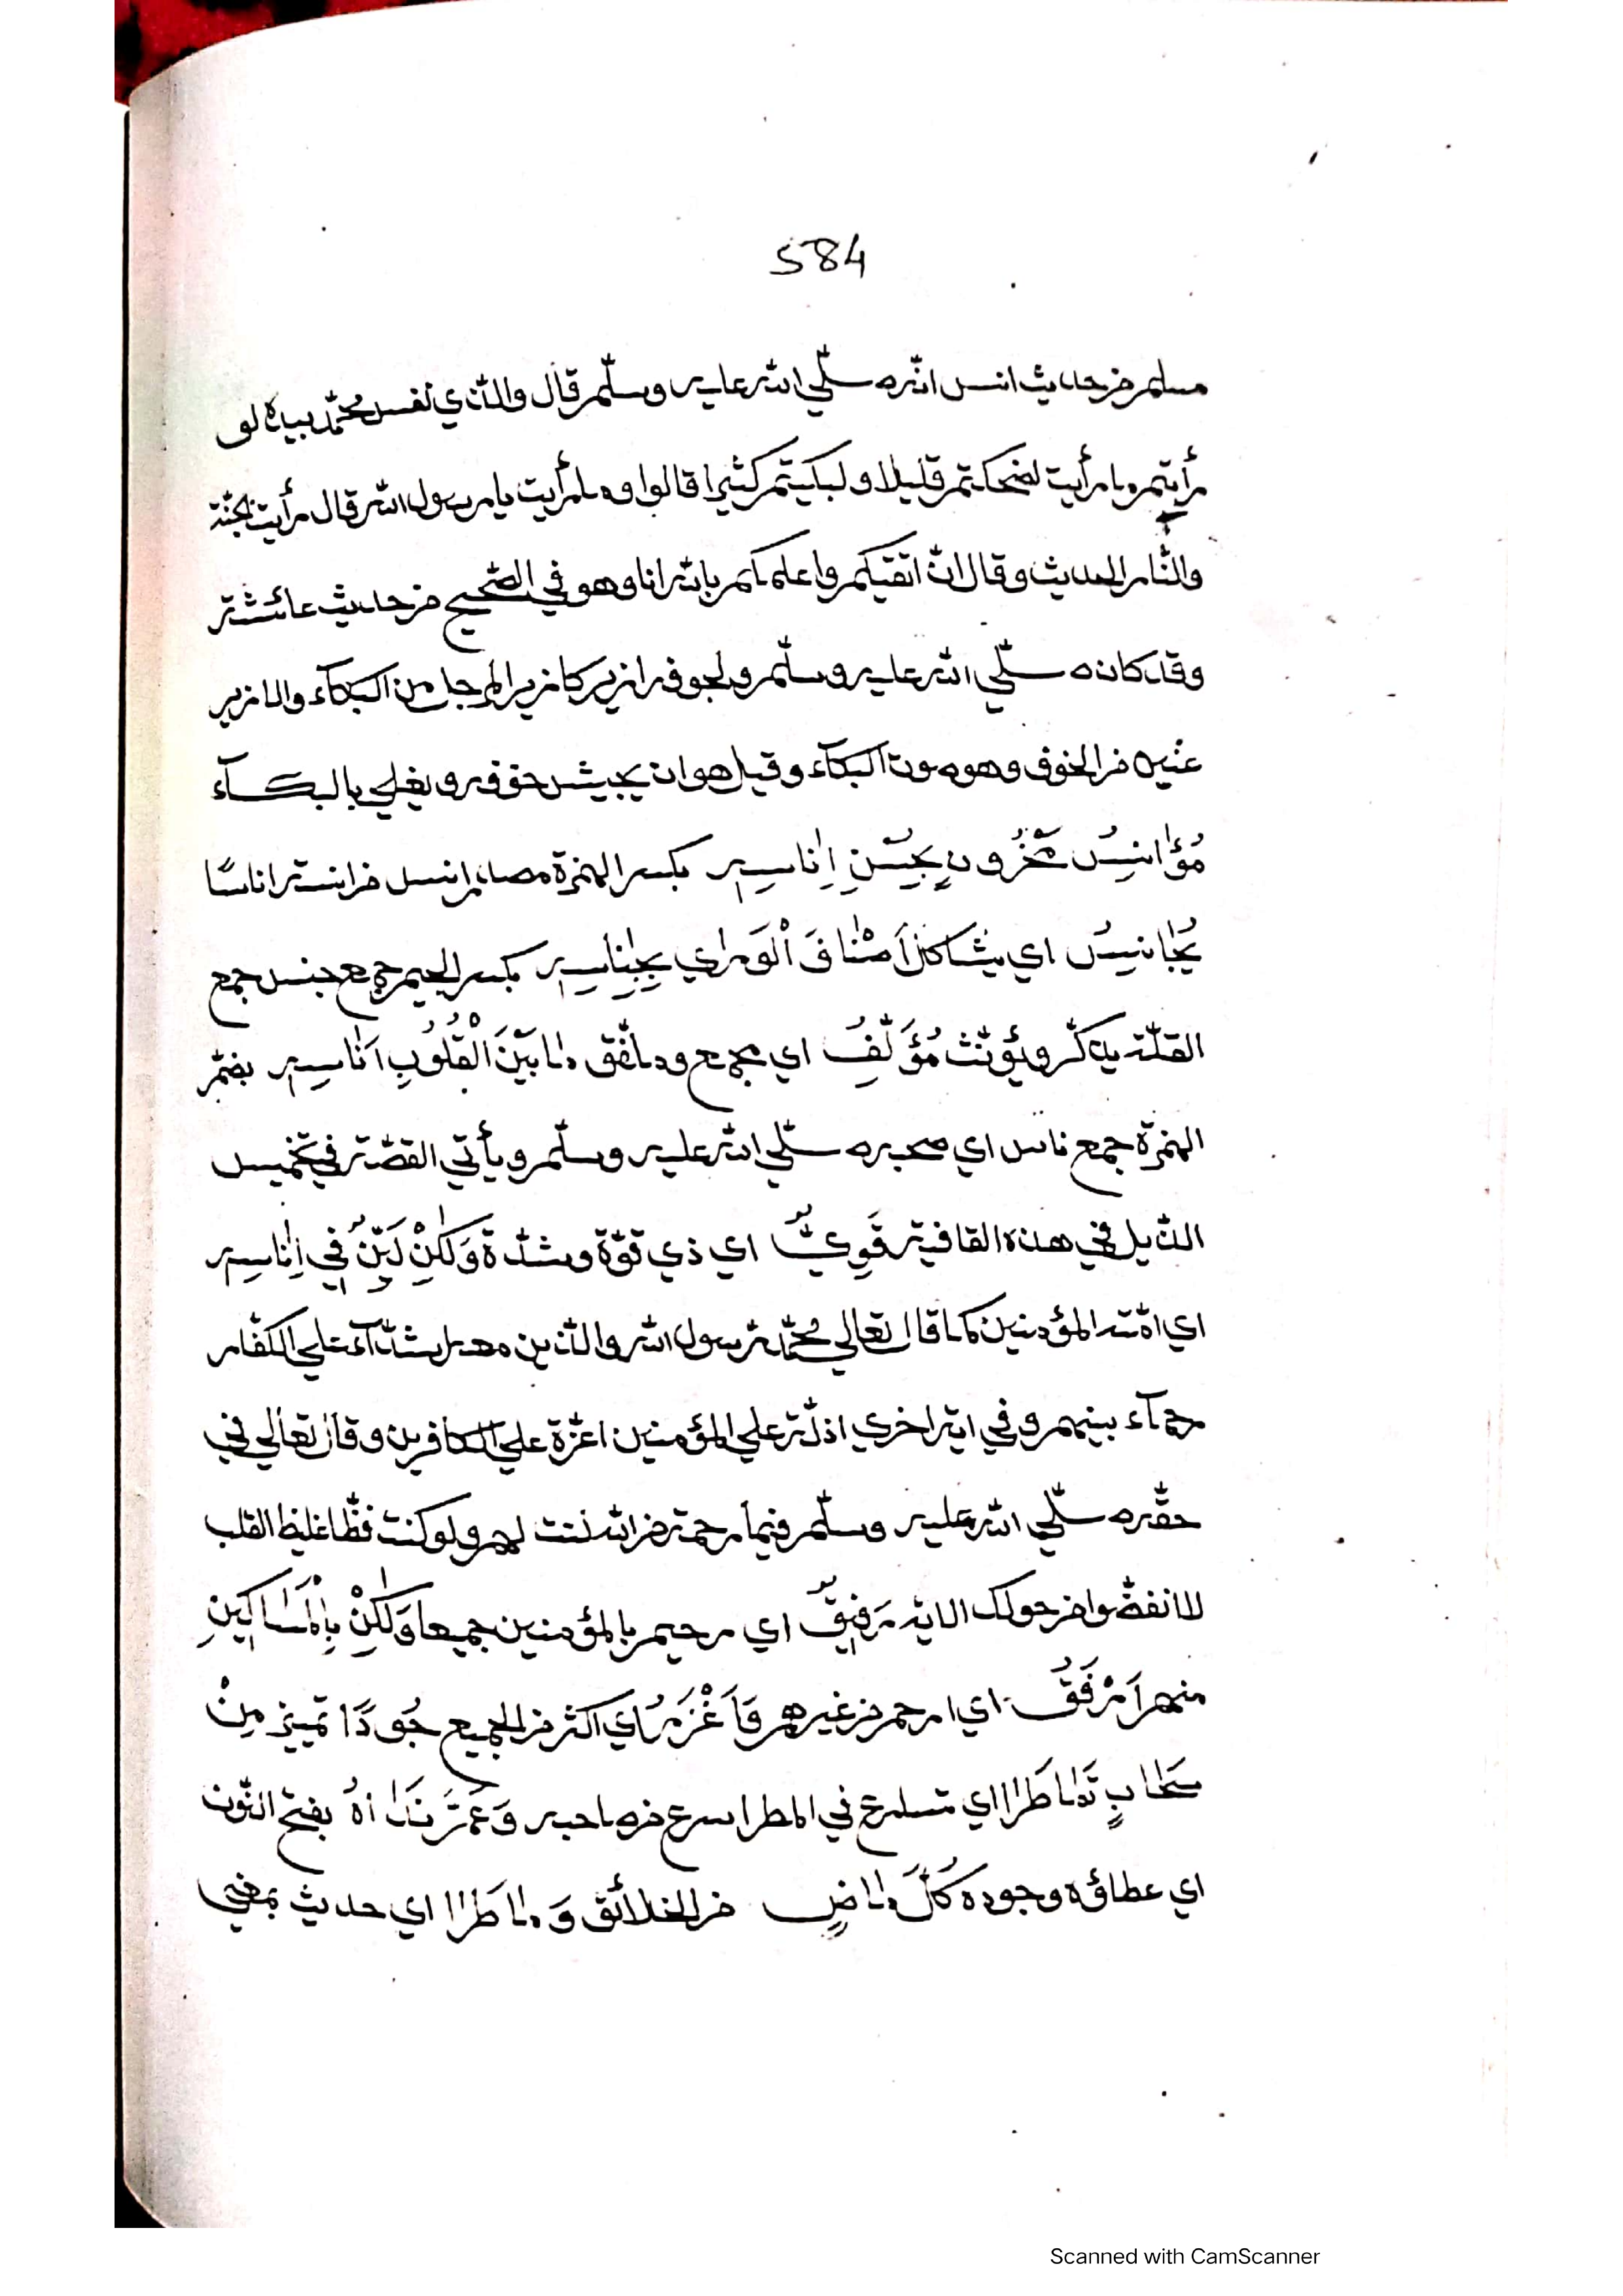 584
مسلم من حديث انس انّه صلّي الله عليه وسلّم قال والّذي نفس محمّد بيده لو
رأيتم ما رأيت لضحكتم قليلا ولبكيتم كثيرا قالوا وما رأيت يا رسول الله قال رأيت الجنّة
والنّار الحديث وقال انّ اتقيكم واعلمكم بالله انا وهو في الصّحيح من حديث عائشة
وقد كان صلّي الله عليه وسلّم ولجوفه ازيز كازيز المرجل من البكآء والازيز
عنين من الخوف وهو صوت البكآء وقيل هو ان يجيش جوفه ويغلي بالبكآء
مُؤَانِسُ مَحْزُونٍ بِحُسْنِ اِنَاسِهِ بكسر الهمزة مصدر انس من انسته اناسًا
يُجَانِسُ اي يشاكل اَصْنَافَ الْوَرَاي بِجِنَاسِهِ بكسر الجيم جمع جنس جمع
القلّة يذكّر ويؤنّث مُؤَلِّفُ اي مجمع وملفّق مَا بَيْنَ الْقُلُوبِ اُنَاسِهِ بضمّ
الهمزة جمع ناس اي صحبه صلّي الله عليه وسلّم ويأتي القصّة في تخميس
الذّيل في هذه القافية قَوِيٌّ اي ذي قوّة وشدّة وَلَكِنْ لَيِّنٌ فِي اِنَاسِهِ
اي امّته المؤمنين كما قال تعالي محمّد رسول الله والّذين معه اشدّآء علي الكفّار
رحمآء بينهم وفي اية اخري اذلّة علي المؤمنين اعزّة علي الكافرين وقال تعالي في
حقّه صلّي الله عليه وسلّم فبما رحمة من الله لنت لهم ولو كنت فظّا غليظ القلب
لانفضّوا من حولك الاية رَفِيقٌ اي رحيم بالمؤمنين جميعا وَلَكِنْ بِالْمَسَاكِينِ
منهم اَرْفَقُ اي ارحم من غيرهم وَاَغْزَرُ اي اكثر من الجميع جُودًا تمييز مِنْ
سَحَابٍ تَمَاطَرَا اي تسارع في المطر اسرع من صاحبه وَعَمَّ نَدَاهُ بفتح النّون
اي عطاؤه وجوده كُلَّ مَاضٍ من الخلائق وَمَا طَرَا اي حديث بمعني
Scanned with CamScanner